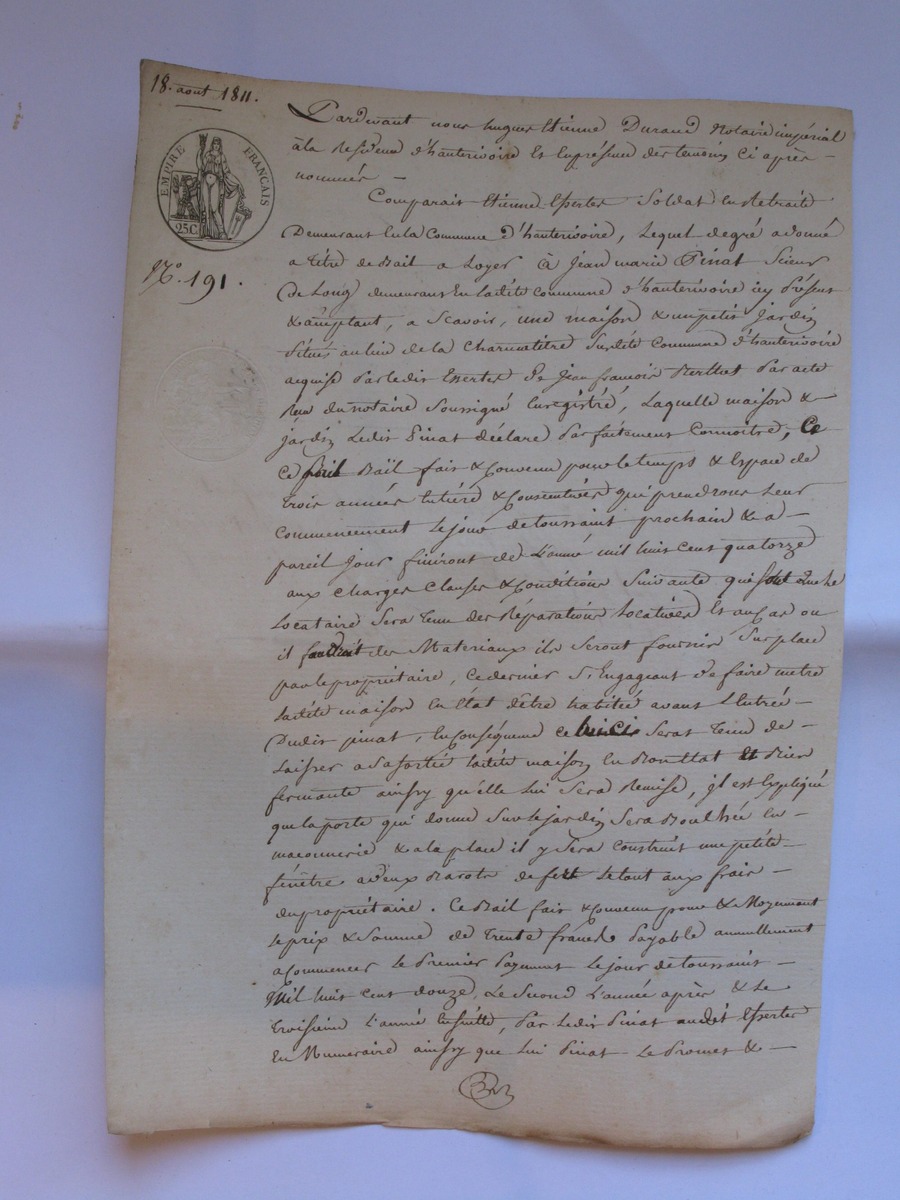 18. aout 1811.
EMPIRE FRANÇAIS
25C
N.º 191.
Pardevant nous hugues Etienne Durand Notaire impérial
à la Residence d'hauterivoire Et En présence des temoins Ci après
nommés
Comparait Etienne Esserter Soldat En Retraite
Demeurant En la Commune d'hauterivoire, Lequel de gré a donné
a titre de Bail a Loyer à Jean marie Pinat Scieur
de Long demeurant En ladite Commune d'hauterivoire icy présent
& acceptant, a Scavoir, une maison & un petit Jardin
Situés au lieu de la Charmatière Susdite Commune d'hauterivoire
acquise par ledit Esserter de Jean francois Berthet par acte
Reçu du notaire Soussigné Enregistré, Laquelle maison &
jardin Ledit Pinat déclare parfaitement Connoitre, Ce
Ce Bail fait & Convenu pour le temps & Espace de
trois années Entiere & Consecutives qui prendront Leur
Commencement Le jour de toussaint prochain & a
pareil Jour finiront de L'année mil huit cent quatorze
aux Charges Clauses & Conditions Suivante qui sont Que le
Locataire Sera tenu des Réparations Locatives Et au Cas ou
il faudrait des Materiaux ils Seront fournir Sur place
par le propriétaire, Ce dernier S'Engageant de faire metre
ladite maison En État d'être habitée avant L'entrée
Dudit pinat, En Conséquence celui ci Serat tenu de
Laisser a Sa sortie ladite maison En Bon Etat Et Bien
fermante ainsy qu'elle Lui Sera Remise, il est Expliqué
que la porte qui donne Sur le jardin Sera Bouchée En
maconnerie & a la place il y Sera Construit une petite
fénêtre a deux Barots de fert le tout aux frais
du propriétaire. Ce Bail fait & Convenu pour & Moyennant
Le prix & Somme de trente francs Payable annuellement
a Commencer Le Premier Payment Le jour de toussaint
Mil huit cent douze, Le Second L'année après & Le
troisieme L'année Ensuitte, Par Ledit Pinat audit Esserter
En Numeraire ainsy que Lui Pinat Le Promet &